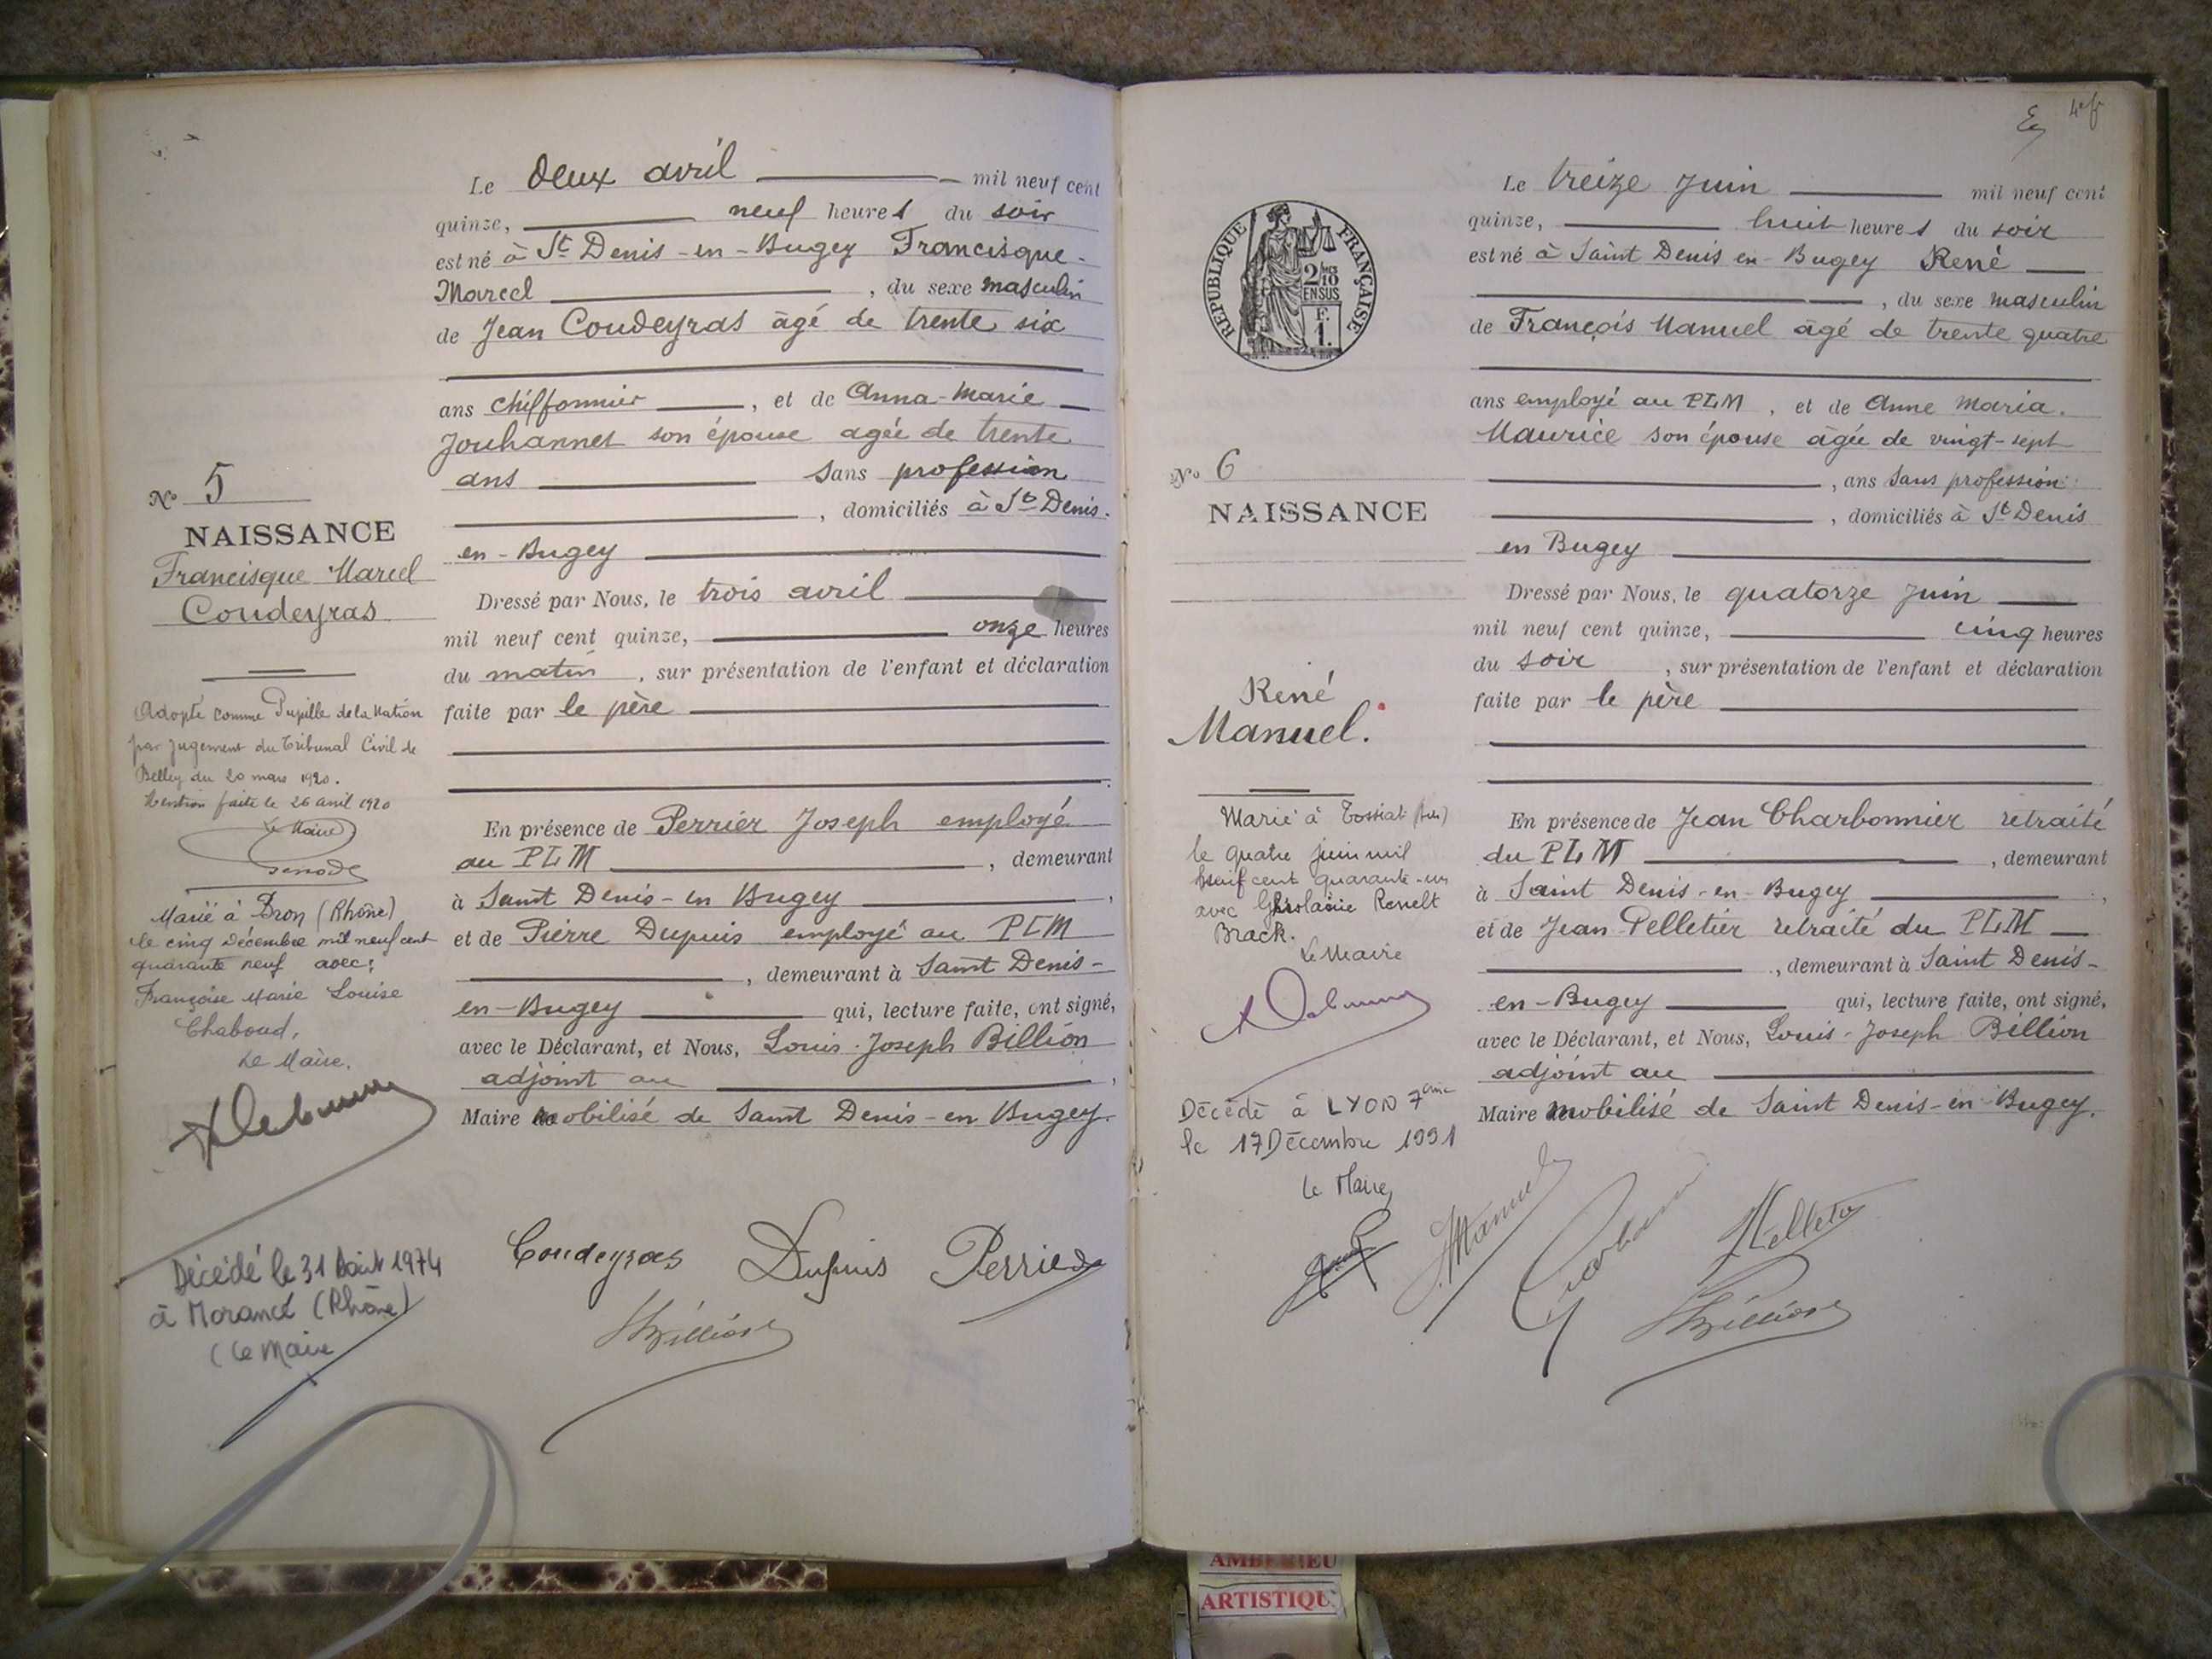 Le deux avril mil neuf cent
quinze, neuf heures du soir
est né à St Denis-en-Bugey Francisque-
Marcel , du sexe masculin
de Jean Coudeyras âgé de trente six
ans chiffonnier , et de Anna-Marie
Jouhannet son épouse agée de trente
ans sans profession
, domiciliés à St Denis.
en-Bugey
Dressé par Nous, le trois avril
mil neuf cent quinze, onze heures
du matin , sur présentation de l'enfant et déclaration
faite par le père
En présence de Perrier Joseph employé
au PLM , demeurant
à Saint Denis-en Bugey ,
et de Pierre Dupuis employé au PLM
, demeurant à Saint Denis-
en-Bugey qui, lecture faite, ont signé,
avec le Déclarant, et Nous, Louis-Joseph Billion
adjoint au ,
Maire mobilisé de Saint Denis-en Bugey.
Coudeyras Dupuis Perrier
Billion
No 5
NAISSANCE
Francisque Marcel
Coudeyras
Adopté comme Pupille de la Nation
par jugement du Tribunal Civil de
Belley du 20 mars 1920.
Mention faite le 26 avril 1920
Le Maire
Marié à Bron (Rhône)
le cinq Décembre mil neuf cent
quarante neuf avec:
Françoise Marie Louise
Chaboud,
Le Maire.
Décédé le 31 Août 1974
à Morancé (Rhône)
Le Maire
REPUBLIQUE FRANÇAISE
2/10
EN SUS
F.
1.
Le treize Juin mil neuf cent
quinze, huit heures du soir
est né à Saint Denis en-Bugey René
, du sexe masculin
de François Manuel âgé de trente quatre
ans employé au PLM , et de Anne Maria.
Maurice son épouse âgée de vingt-sept
, ans sans profession
, domiciliés à St Denis
en Bugey
Dressé par Nous, le quatorze Juin
mil neuf cent quinze, cinq heures
du soir , sur présentation de l'enfant et déclaration
faite par le père
En présence de Jean Charbonnier retraité
du PLM , demeurant
à Saint Denis-en-Bugey ,
et de Jean Pelletier retraité du PLM
, demeurant à Saint Denis-
en-Bugey qui, lecture faite, ont signé,
avec le Déclarant, et Nous, Louis-Joseph Billion
adjoint au
Maire mobilisé de Saint Denis-en-Bugey.
Manuel Pelletier
Billion
No 6
NAISSANCE
René
Manuel.
Marié à Tossiat (Ain)
le quatre juin mil
neuf cent quarante-un
avec Ghislaine
Brack.
Le Maire
Décédé à LYON 7ème
le 17 Décembre 1991
Le Maire,
AMBERIEU
ARTISTIQU